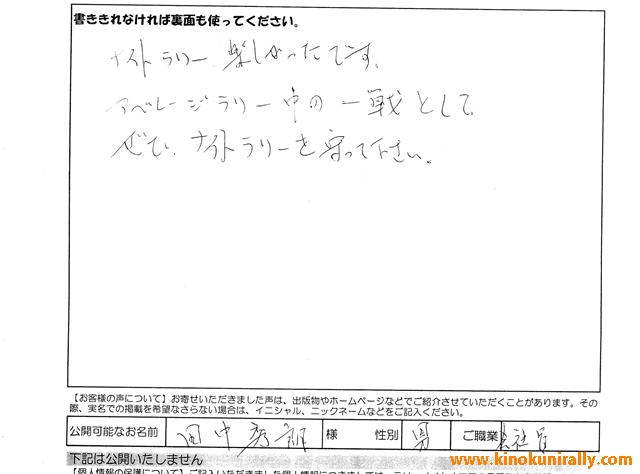 書ききれなければ裏面も使ってください。
ナイトラリー楽しかったです。
アベレージラリー中の一戦として
ぜひ、ナイトラリーを守って下さい。
www.kinokunirally.com
【お客様の声について】お寄せいただきました声は、出版物やホームページなどでご紹介させていただくことがあります。その
際、実名での掲載を希望なさらない場合は、イニシャル、ニックネームなどをご記入ください。
公開可能なお名前 田中 様 性別 男 ご職業 会社員
下記は公開いたしません
【個人情報の保護について】ご記入いただきました個人情報につきましては、